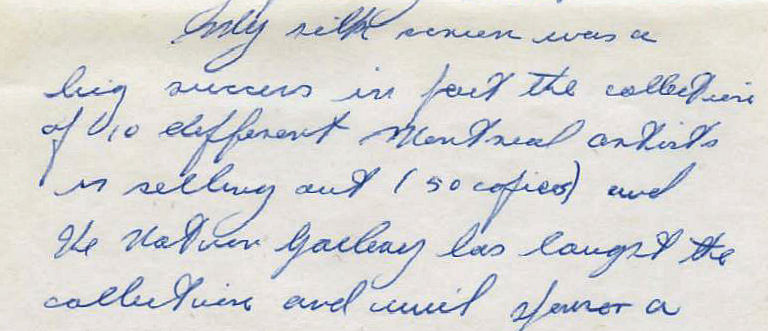 My silk screen was a
big success in fact the collection
of 10 different Montreal artists
is selling out (50 copies) and
the Nation Gallery has bought the
collection and will sponsor a